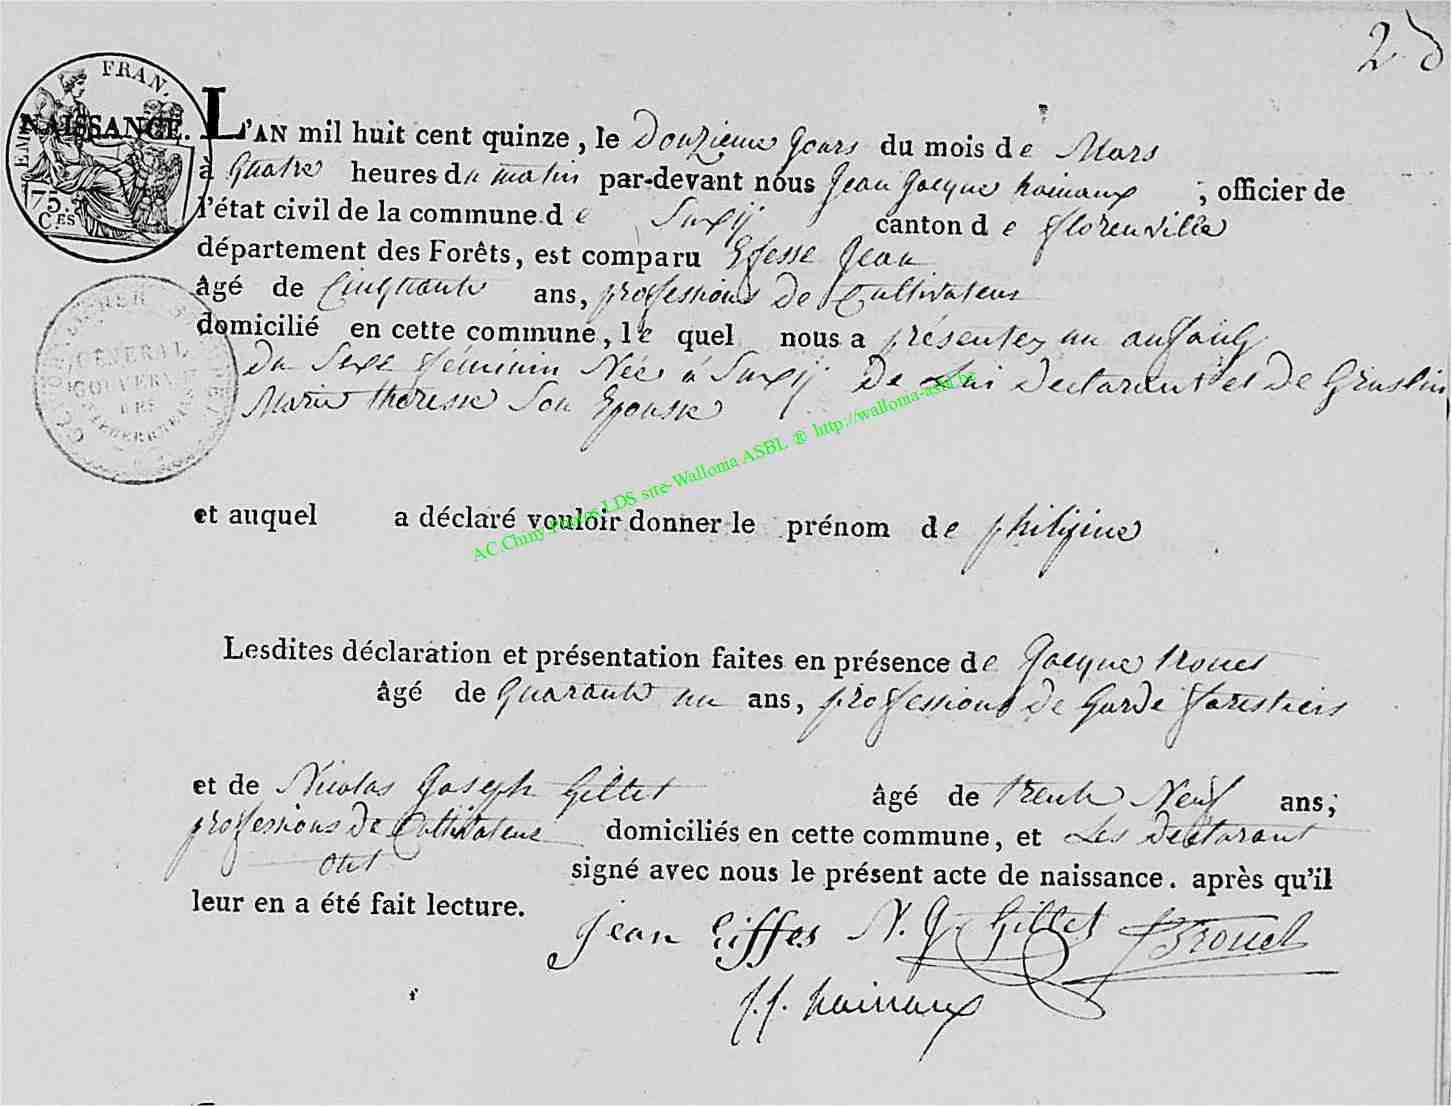 2
FRAN.
75.
C.ES
NAISSANCE. L'AN mil huit cent quinze, le Douzieme Jours du mois de Mars
à Quatre heures du matin par-devant nous Jean Jacque hainaux ; officier de
l'état civil de la commune de Suxÿ canton de florenville
département des Forêts, est comparu Jean
âgé de Cinquante ans, professions De Cultivateur
domicilié en cette commune, le quel nous a présentez un
Du Sexe féminin Née à Suxÿ De Lui Declarant et De
Marie therese Son Epouse
GÉNÉRAL
GOUVERN
et auquel a déclaré vouloir donner le prénom de philipine
AC Chiny Photos LDS site-Wallonia ASBL ® http://wallonia-asbl.be
Lesdites déclaration et présentation faites en présence de Jacque
âgé de Quarante un ans, professions De Garde forestiers
et de Nicolas Joseph Gillet âgé de trente Neuf ans;
professions De Cultivateur domiciliés en cette commune, et Les Declarant
ont signé avec nous le présent acte de naissance. après qu'il
leur en a été fait lecture.
jean Eiffes N. J. Gillet
J. J. hainaux